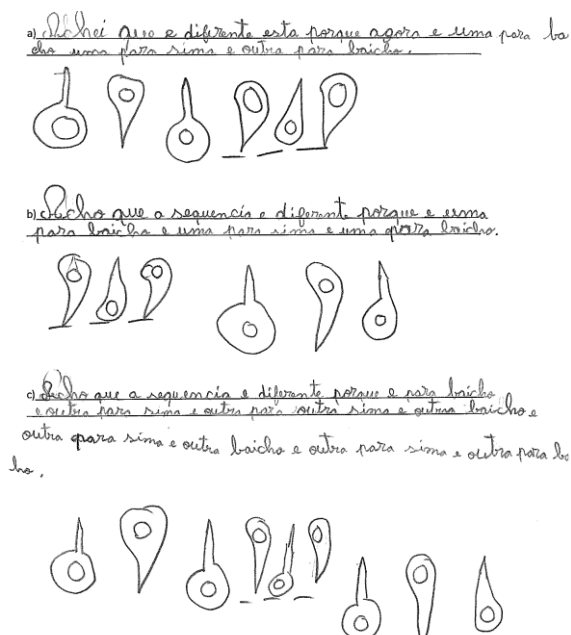 a) Achei que e diferente esta porque agora e uma para ba
cho uma para sima e outra para baicho.
b) Acho que a sequencia e diferente porque e uma
para baicho e uma para sima e uma para baicho.
c) Acho que a sequencia e diferente porque e para baicho
e outra para sima e outra para outra sima e outra baicho e
outra para sima e outra baicho e outra para sima e outra para ba
ho.